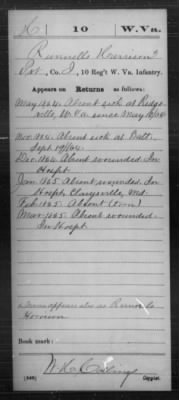 R 10 W. Va.
Runnells Harrison*
Pvt., Co. I, 10 Reg't W. Va. Infantry.
Appears on Returns as follows:
May 1864. Absent sick at
W. Va. since May
Nov. 1864. Absent sick at Balt.
Sept 19/64.
Dec. 1864 Absent wounded. In
Hospt.
Jan 1865 Absent wounded. In
Hospt. Clarysville, Md.
Feb 1865. Absent
Mar. 1865. Absent wounded.
In Hospt.
*Name appears also as
Harrison
Book mark:
(546) Copyist.